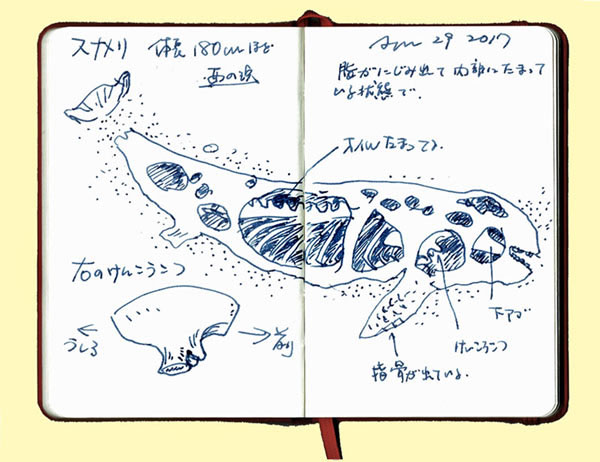 スナメリ 体長180cmほど
西の浜
29 2017
脂がにじみ出て内部にたまって
いる状態で.
オイルたまってる.
右のけんこうこつ
うしろ
前
下アゴ
けんこうこつ
指骨が出ている.